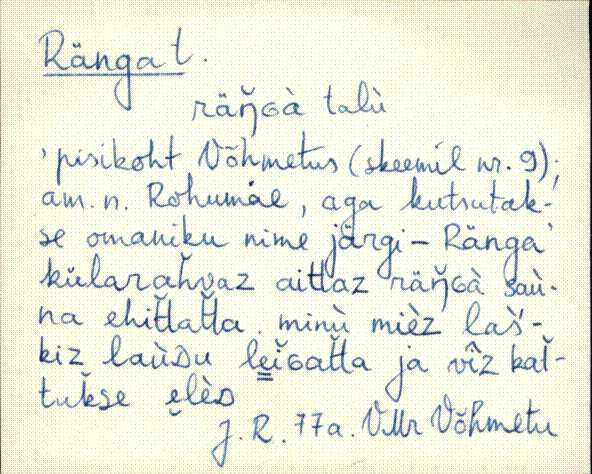 Ränga t.
räŋ̆ɢà talù
'pisikoht Võhmetus (skeemil nr. 9);
am. n. Rohumäe, aga kutsutak-
se omaniku nime järgi – Ränga'
külarah̆vaz aittaz räŋ̆ɢà saù-
na ehit̆tat̆ta. minù mièz laś-
kiz laùᴅu lei̮ɢat̆ta ja vîz kat̆-
tuk̆se elèᴅ
J. R. 77a. VMr Võhmetu